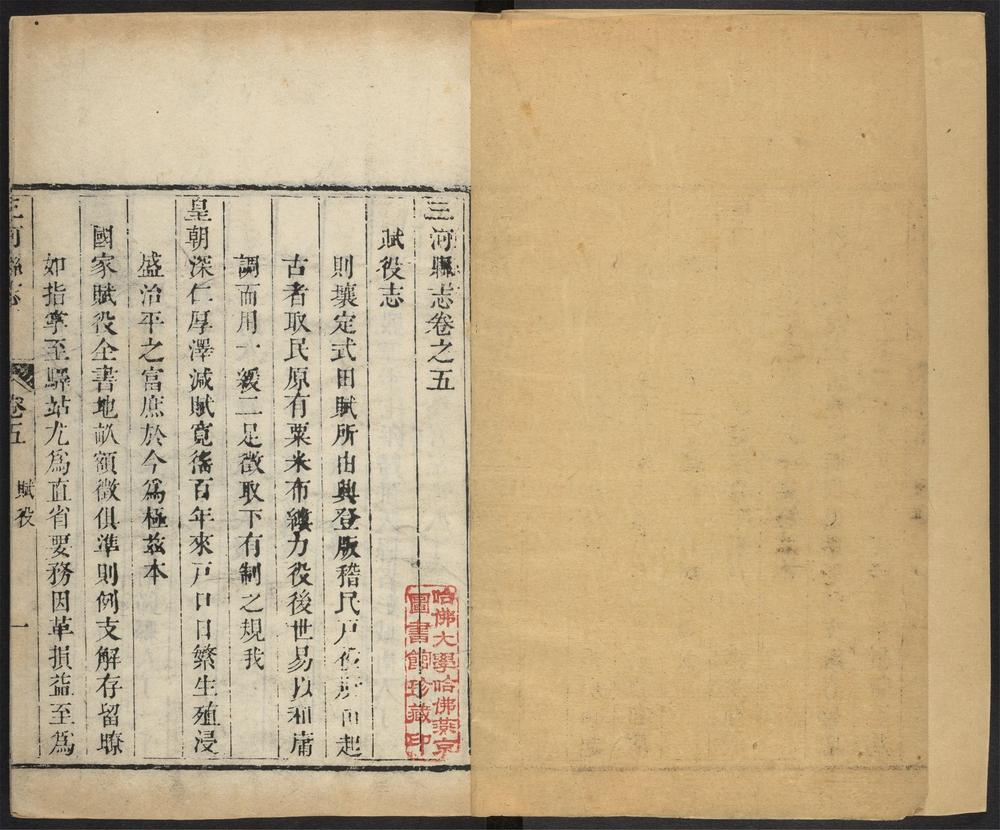 三河縣志卷之五
賦役志
則壤定式田賦所由興登版稽民戶役所由起
古者取民原有粟米布縷力役後世易以租庸
調而用一緩二足徵取下有制之規我
皇朝深仁厚澤減賦寬徭百年來戶口日繁生殖浸
盛治平之富庶於今為極茲本
國家賦役全書地畝額徵俱準則例支解存留瞭
如指掌至驛站尤為直省要務因革損益至為
三河縣志
卷五
賦役
一
哈佛大學哈佛燕京
圖書館珍藏印